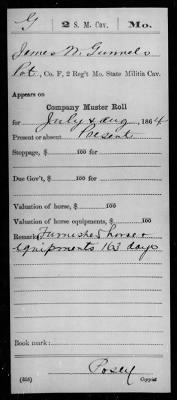 G 2 S. M. Cav. Mo.
James W. Gunnels
Pvt, Co. F, 2 Reg't Mo. State Militia Cav.
Appears on
Company Muster Roll
for July & Aug, 1864
Present or absent Present
Stoppage, $ 100 for
Due Gov't, $ 100 for
Valuation of horse, $ 100
Valuation of horse equipments, $ 100
Remarks: Furnished horse &
equipments 163 days
Book mark:
Posey
(858) Copyist